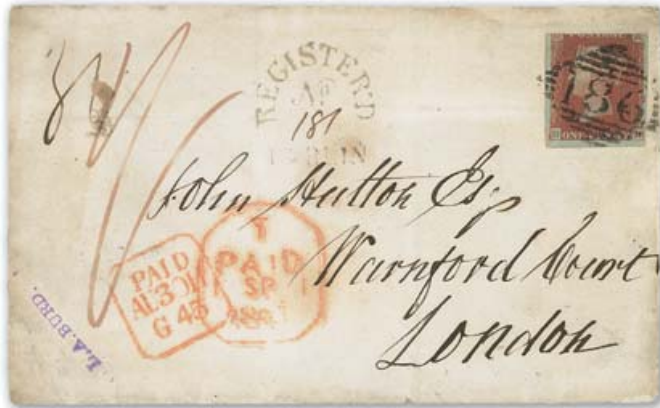 REGISTER'D
No
181
186
John Hutton Esq
Warnford Court
London
PAID
G 43
T
PAID
SP 1
L.A. BURD.